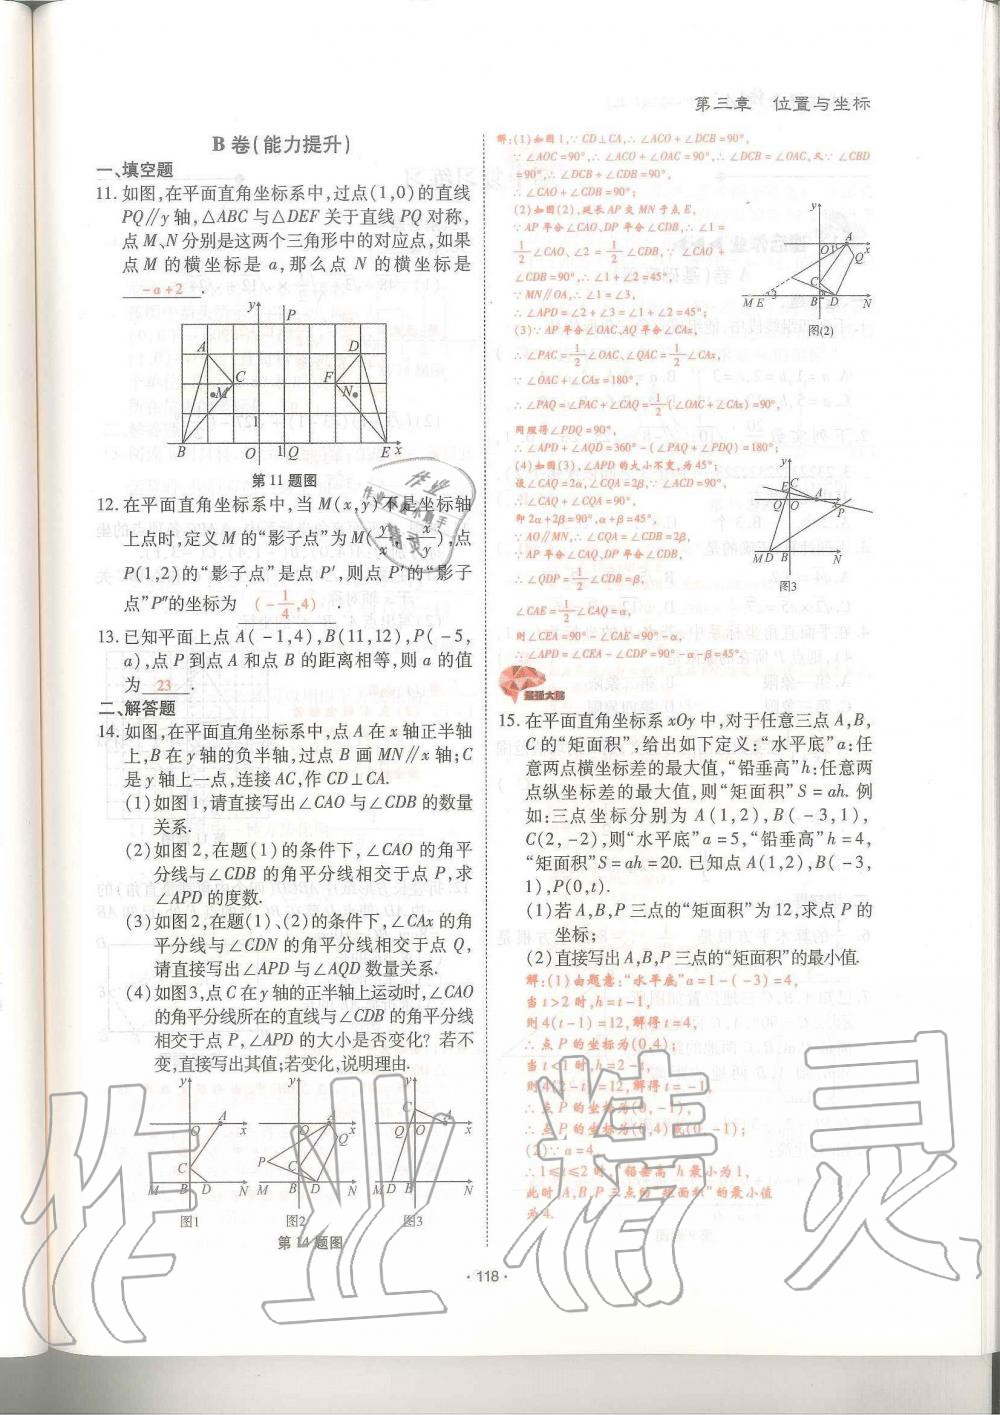 第三章 位置与坐标
B 卷(能力提升)
一、填空题
11. 如图,在平面直角坐标系中,过点(1,0)的直线
PQ∥y 轴,△ABC 与△DEF 关于直线 PQ 对称,
点 M、N 分别是这两个三角形中的对应点,如果
点 M 的横坐标是 a,那么点 N 的横坐标是
-a+2 .
y P
A D
C F
M N
1
B O 1 Q E x
第 11 题图
12. 在平面直角坐标系中,当 M(x,y)不是坐标轴
上点时,定义 M 的“影子点”为 M(y/x,-x/y),点
P(1,2)的“影子点”是点 P′,则点 P′的“影子
点”P″的坐标为 (-1/4,4) .
13. 已知平面上点 A(-1,4),B(11,12),P(-5,
a),点 P 到点 A 和点 B 的距离相等,则 a 的值
为 23 .
二、解答题
14. 如图,在平面直角坐标系中,点 A 在 x 轴正半轴
上,B 在 y 轴的负半轴,过点 B 画 MN∥x 轴;C
是 y 轴上一点,连接 AC,作 CD⊥CA.
(1)如图 1,请直接写出∠CAO 与∠CDB 的数量
关系.
(2)如图 2,在题(1)的条件下,∠CAO 的角平
分线与∠CDB 的角平分线相交于点 P,求
∠APD 的度数.
(3)如图 2,在题(1)、(2)的条件下,∠CAx 的角
平分线与∠CDN 的角平分线相交于点 Q,
请直接写出∠APD 与∠AQD 数量关系.
(4)如图 3,点 C 在 y 轴的正半轴上运动时,∠CAO
的角平分线所在的直线与∠CDB 的角平分线
相交于点 P,∠APD 的大小是否变化? 若不
变,直接写出其值;若变化,说明理由.
图1 图2 图3
第 14 题图
解:(1)如图 1,∵CD⊥CA,∴∠ACO+∠DCB=90°,
∵∠AOC=90°,∴∠CAO+∠ACO=90°,∴∠DCB=∠OAC,又∵∠CBD
=90°,∴∠DCB+∠CDB=90°,
∴∠CAO+∠CDB=90°;
(2)如图(2),延长 AP 交 MN 于点 E,
∵AP 平分∠CAO、DP 平分∠CDB,∴∠1=
1/2∠CAO、∠2=1/2∠CDB,∵∠CAO+
∠CDB=90°,∴∠1+∠2=45°,
∵MN∥OA,∴∠1=∠3,
∴∠APD=∠2+∠3=∠1+∠2=45°;
(3)∵AP 平分∠OAC、AQ 平分∠CAx,
∴∠PAC=1/2∠OAC、∠QAC=1/2∠CAx,
∵∠OAC+∠CAx=180°,
∴∠PAQ=∠PAC+∠CAQ=1/2(∠OAC+∠CAx)=90°,
同理得∠PDQ=90°,
∴∠APD+∠AQD=360°-(∠PAQ+∠PDQ)=180°;
(4)如图(3),∠APD 的大小不变,为 45°;
设∠CAQ=2α,∠CQA=2β,∵∠ACD=90°,
∴∠CAQ+∠CQA=90°,
即 2α+2β=90°,α+β=45°,
∵AO∥MN,∴∠CQA=∠CDB=2β,
∵AP 平分∠CAQ、DP 平分∠CDB,
∴∠QDP=1/2∠CDB=β,
∠CAE=1/2∠CAQ=α,
则∠CEA=90°-∠CAE=90°-α,
∴∠APD=∠CEA-∠CDP=90°-α-β=45°.
图(2)
图3
最强大脑
15. 在平面直角坐标系 xOy 中,对于任意三点 A,B,
C 的“矩面积”,给出如下定义:“水平底”a:任
意两点横坐标差的最大值,“铅垂高”h:任意两
点纵坐标差的最大值,则“矩面积”S=ah. 例
如:三点坐标分别为 A(1,2),B(-3,1),
C(2,-2),则“水平底”a=5,“铅垂高”h=4,
“矩面积”S=ah=20. 已知点 A(1,2),B(-3,
1),P(0,t).
(1)若 A,B,P 三点的“矩面积”为 12,求点 P 的
坐标;
(2)直接写出 A,B,P 三点的“矩面积”的最小值.
解:(1)由题意:“水平底”a=1-(-3)=4,
当 t>2 时,h=t-1,
则 4(t-1)=12,解得 t=4,
∴点 P 的坐标为(0,4);
当 t<1 时,h=2-t,
则 4(2-t)=12,解得 t=-1,
∴点 P 的坐标为(0,-1),
∴点 P 的坐标为(0,4)或(0,-1);
(2)∵a=4,
∴1≤t≤2 时,“铅垂高”h 最小为 1,
此时,A,B,P 三点的“矩面积”的最小值
为 4.
· 118 ·
作业精灵